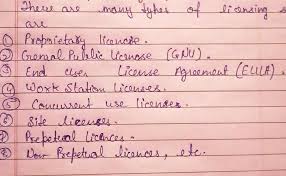 There are many types of licensing s
are
① Proprietary license.
② General Public License (GNU).
③ End User License Agreement (EULA).
④ Work Station Licenses.
⑤ Concurrent use licenses.
⑥ Site licenses.
⑦ Prepetual Licences.
⑧ Non Prepetual licences, etc.